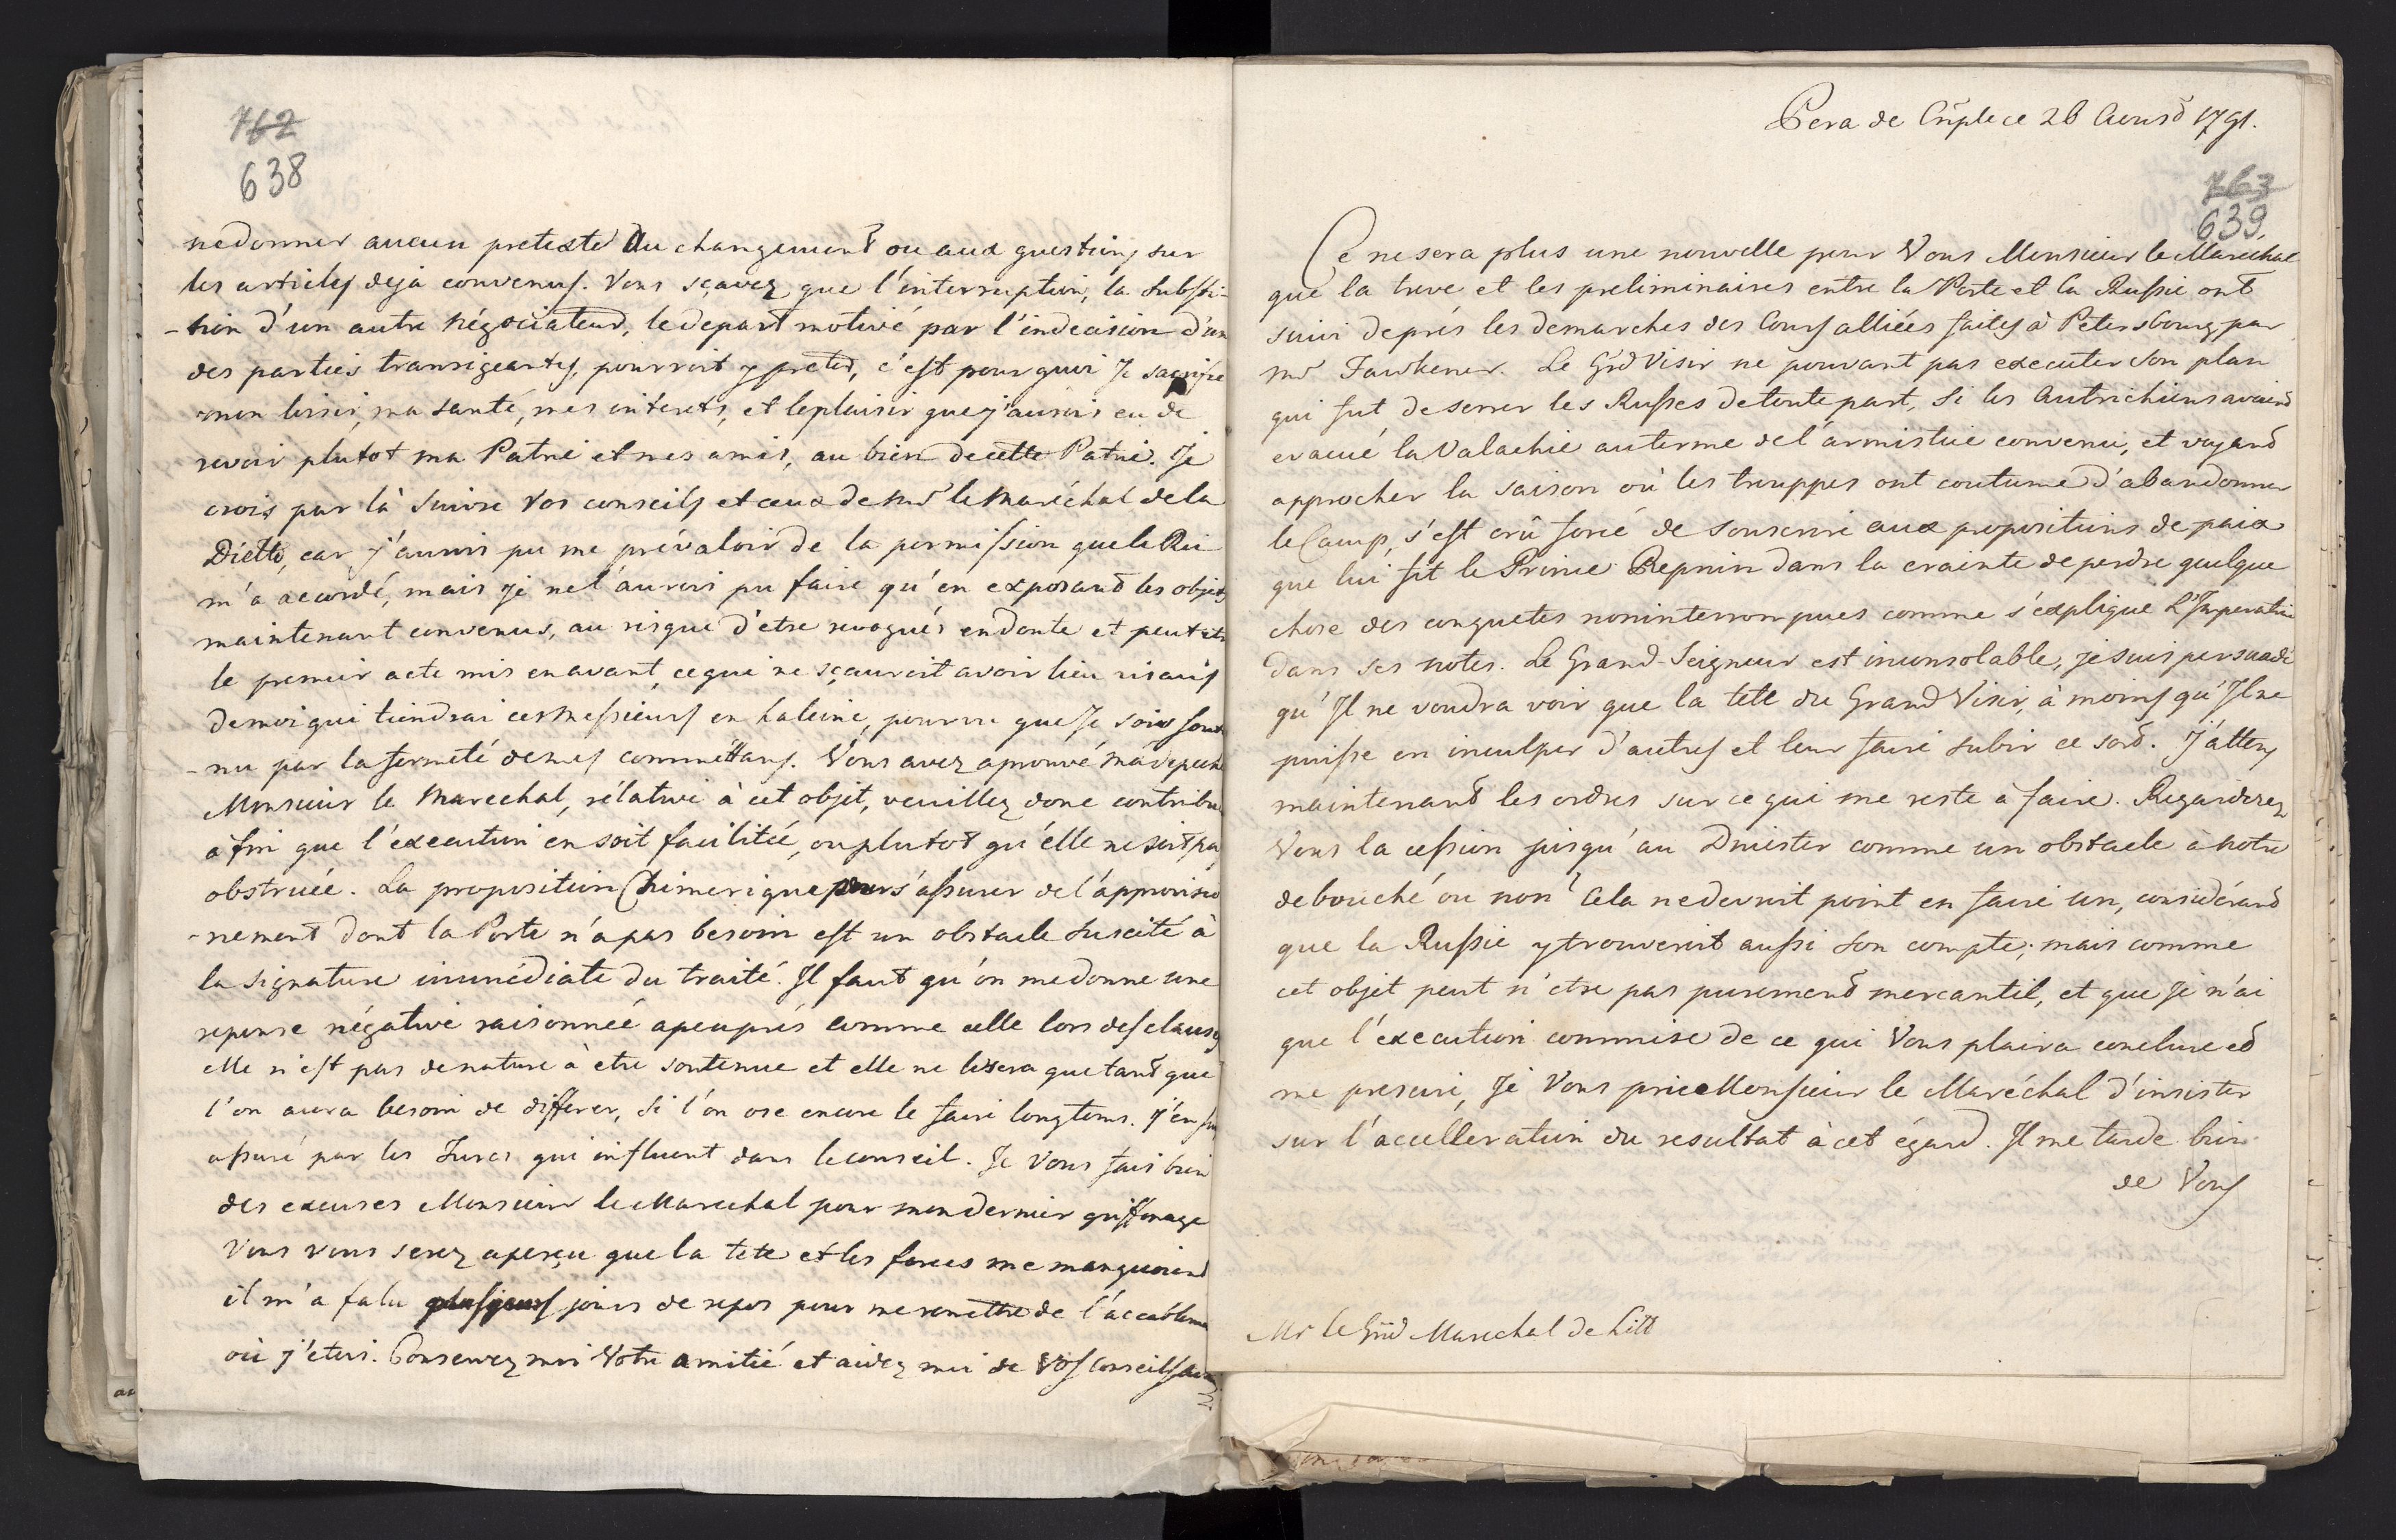 762
638
ne donner aucun pretexte du changement ou aux questions sur
les articles deja convenus. Vous sçavez que l'interruption, la substi-
-tion d'un autre Négociateur, le depart motivé par l'indecision d'un
des parties transigeantes, pourroit y preter, c'est pourquoi Je sacrifie
mon loisir, ma santé, mes interets, et le plaisir que j'aurois eu de
revoir plutot ma Patrie et mes amis, au bien de cette Patrie. Je
crois par là suivre vos conseils et ceux de Mr le Maréchal de la
Diette, car j'aurois pu me prévaloir de la permission que le Roi
m'a acordé, mais je ne l'aurois pu faire qu'en exposant les objets
maintenant convenus, au risque d'etre revoqués en doute et peut etr
le premier acte mis en avant, ce qui ne sçauroit avoir lieu vis a vis
de moi qui tiendrai ces Messieurs en haleine, pourvu que Je sois soute
-nu par la fermeté de mes committans. Vous avez aprouvé ma depeche
Monsieur le Marechal, rélative à cet objet, veuillez donc contribu
afin que l'execution en soit facilitée, ou plutot qu'elle ne soit pa
obstruée. La proposition Chimerique pour s'assurer de l'approvisio
-nement dont la Porte n'a pas besoin est un obstacle suscité à
la signature immédiate du traité. Il faut qu'on me donne une
reponse négative raisonnée apeuprés comme celle lors des clauses
elle n'est pas de nature à etre soutenue et elle ne le sera que tant que
l'on aura besoin de differer, si l'on ose encore le faire longtems. J'en su
assuré par les Turcs qui influent dans le conseil. Je Vous fais bien
des excuses Monsieur le Marechal pour mon dernier griffonage
Vous vous serez aperçu que la tete et les forces me manquoient
il m'a falu plusieurs jours de repos pour me remettre de l'accableme
où j'etois. Conservez moi Votre amitié et aidez moi de Vos Conseils
Pera de Cñple ce 26 Aoust 1791.
763
639
Ce ne sera plus une nouvelle pour Vous Monsieur le Maréchal
que la treve et les preliminaires entre la Porte et la Russie ont
suivi de prés les demarches des Cours alliées faites à Petersbourg par
Mr Fawkener. Le Grd Visir ne pouvant pas executer son plan
qui fut de serrer les Russes de toute part, si les Autrichiens avoient
evacué la Valachie au terme de l'armistice convenu, et voyant
approcher la saison où les trouppes ont coutume d'abandonner
le Camp, s'est crû forcé de souscrire aux propositions de paix
que lui fit le Prince Repnin dans la crainte de perdre quelque
chose des conquetes non interrompues comme s'explique L'Imperatrice
dans ses notes. Le Grand-Seigneur est inconsolable, je suis persuadé
qu'Il ne voudra voir que la tete du Grand Visir, à moins qu'Il ne
puisse en inculper d'autres et leur faire subir ce sort. J'attens
maintenant les ordres sur ce qui me reste à faire. Regarderez
Vous la cession jusqu'au Dniester comme un obstacle à notre
debouché ou non? Cela ne devroit point en faire un, considérant
que la Russie y trouveroit aussi son compte; mais comme
cet objet peut n'etre pas purement mercantil, et que je n'ai
que l'execution commise de ce qui Vous plaira conclure et
me prescrire, Je Vous prie Monsieur le Maréchal d'insister
sur l'accelleration du resultat à cet égard. Il me tarde bien
de Vous
Mr le Grd Marechal de Litt